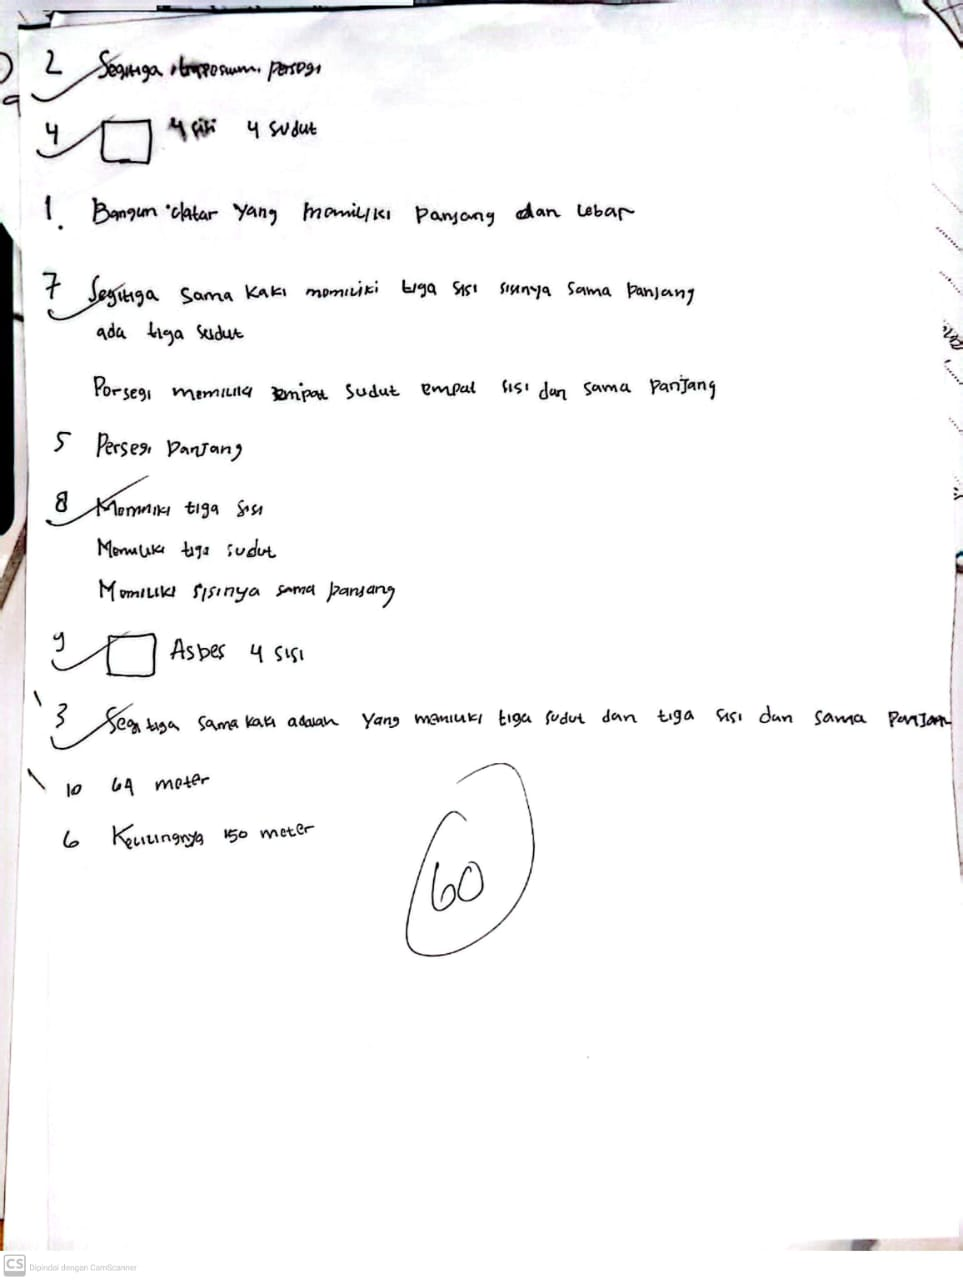 2 Segitiga, trapesium, persegi
4 4 sisi 4 sudut
1. Bangun datar yang memiliki panjang dan lebar
7 Segitiga sama kaki memiliki tiga sisi sisinya sama panjang
ada tiga sudut
Persegi memiliki empat sudut empat sisi dan sama panjang
5 Persegi panjang
8 Memiliki tiga sisi
Memiliki tiga sudut
Memiliki sisinya sama panjang
9 Asbes 4 sisi
3 Segitiga sama kaki adalah yang memiliki tiga sudut dan tiga sisi dan sama
10 64 meter
6 Kelilingnya 150 meter
60
CS Dipindai dengan CamScanner